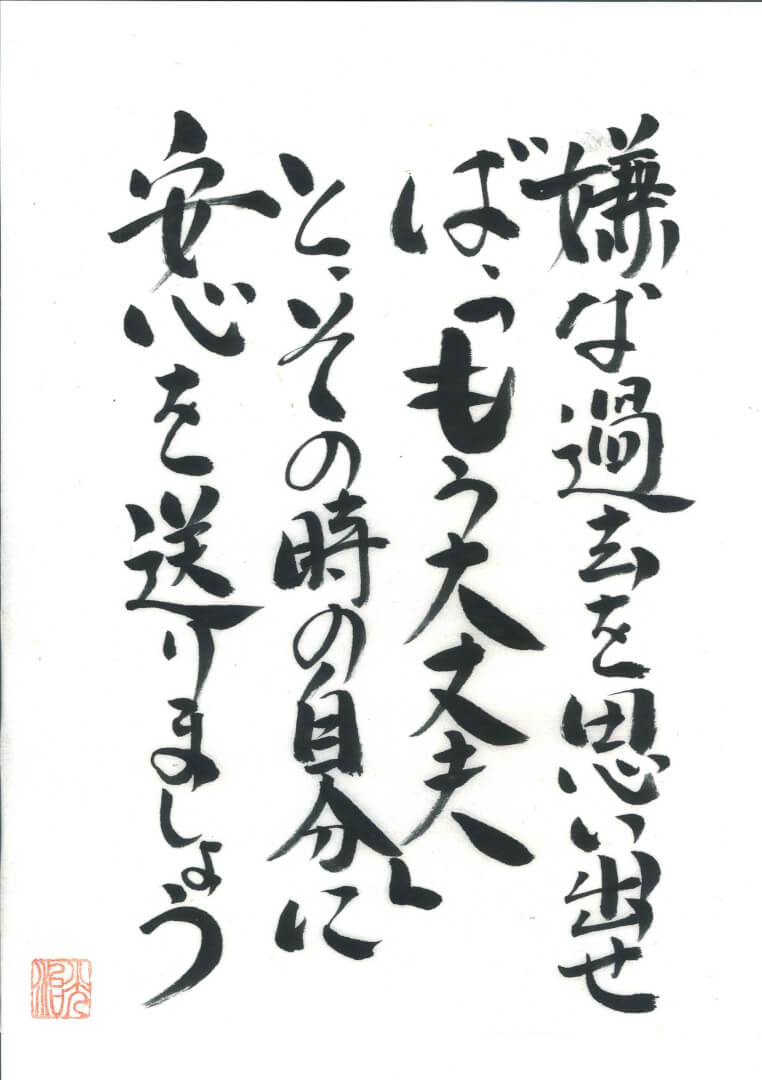 嫌な過去を思い出せ
ば、「もう大丈夫」
と、その時の自分に
安心を送りましょう